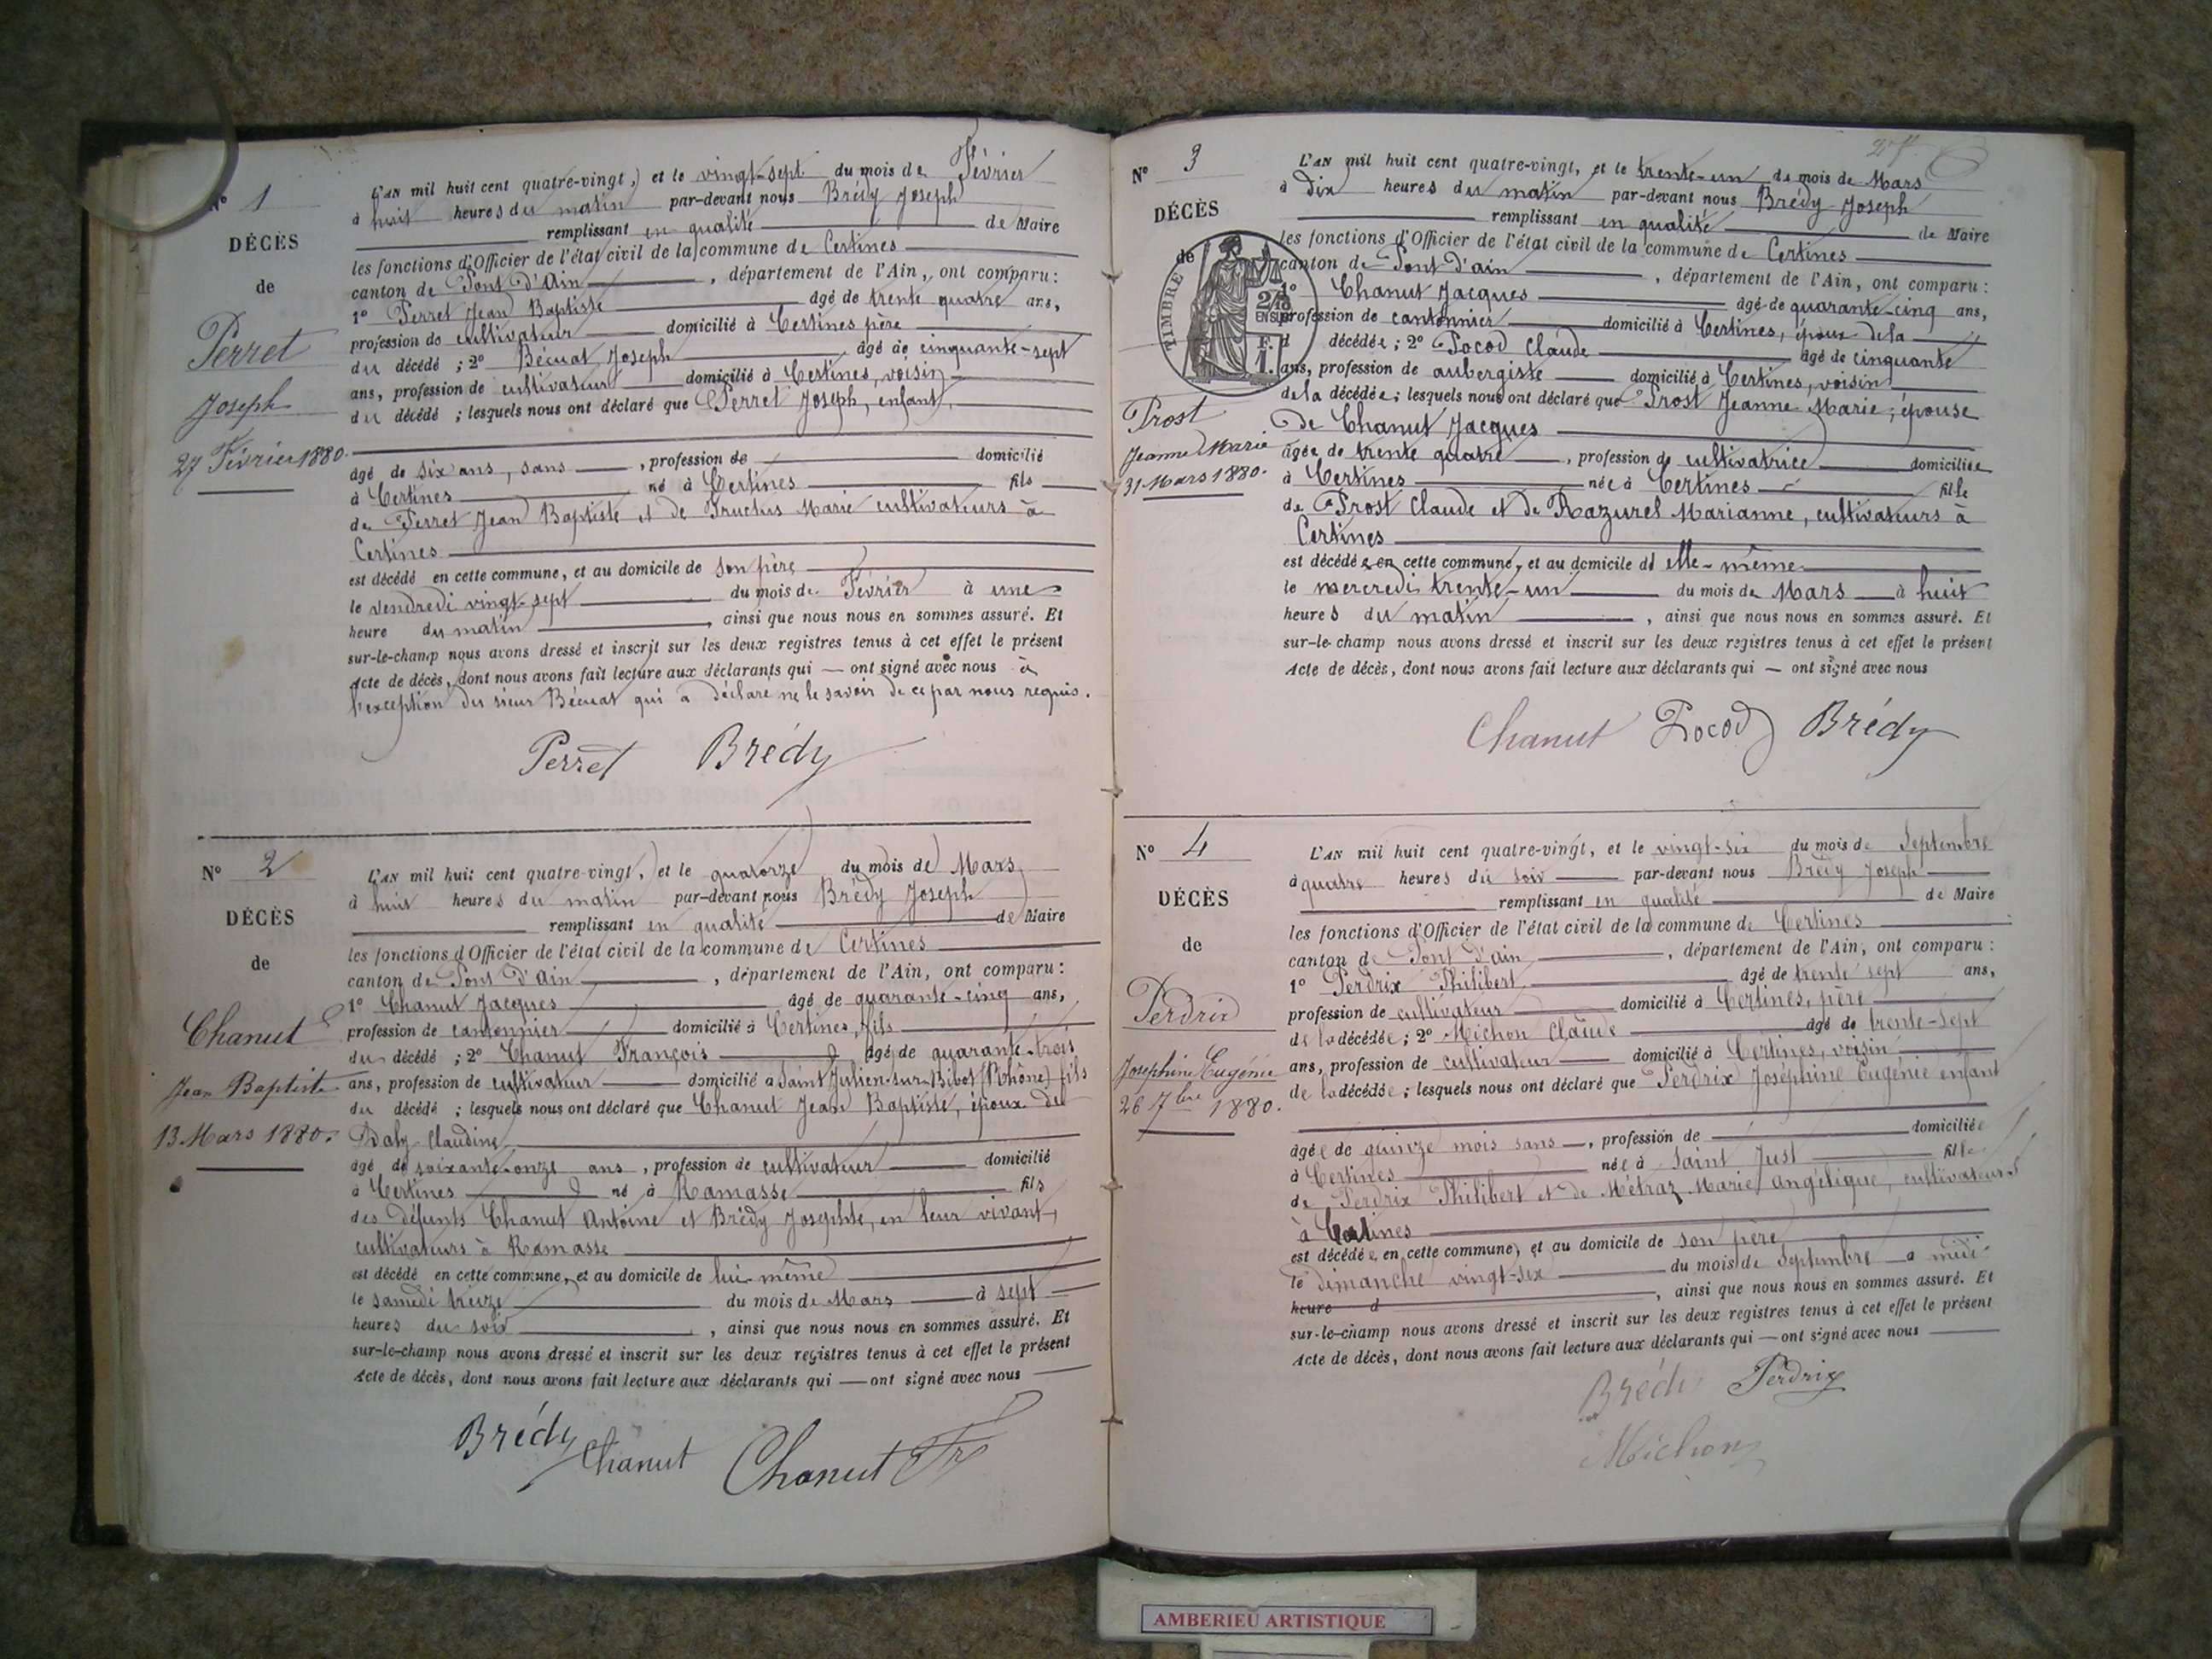 N° 1
DÉCÈS
de
Perret
Joseph
27 Février 1880.
L'AN mil huit cent quatre-vingt, et le vingt-sept du mois de Février
à huit heures du matin par-devant nous Brédy Joseph
remplissant en qualité de Maire
les fonctions d'Officier de l'état civil de la commune de Certines
canton de Pont d'Ain, département de l'Ain, ont comparu :
1° Perret Jean Baptiste âgé de trente quatre ans,
profession de cultivateur domicilié à Certines père
du décédé ; 2° Bécuat Joseph âgé de cinquante-sept
ans, profession de cultivateur domicilié à Certines, voisin
du décédé ; lesquels nous ont déclaré que Perret Joseph, enfant,
âgé de six ans, sans, profession de domicilié
à Certines né à Certines fils
de Perret Jean Baptiste et de Fructus Marie cultivateurs à
Certines
est décédé en cette commune, et au domicile de son père
le vendredi vingt-sept du mois de Février à une
heure du matin, ainsi que nous nous en sommes assuré. Et
sur-le-champ nous avons dressé et inscrit sur les deux registres tenus à cet effet le présent
Acte de décès, dont nous avons fait lecture aux déclarants qui — ont signé avec nous à
l'exception du sieur Bécuat qui a déclaré ne le savoir de ce par nous requis.
Perret Brédy
N° 2
DÉCÈS
de
Chanut
Jean Baptiste
13 Mars 1880.
L'AN mil huit cent quatre-vingt, et le quatorze du mois de Mars
à huit heures du matin par-devant nous Brédy Joseph
remplissant en qualité de Maire
les fonctions d'Officier de l'état civil de la commune de Certines
canton de Pont d'Ain, département de l'Ain, ont comparu :
1° Chanut Jacques âgé de quarante-cinq ans,
profession de cantonnier domicilié à Certines, fils
du décédé ; 2° Chanut François âgé de quarante-trois
ans, profession de cultivateur domicilié à Saint Julien-sur-Bibot (Rhône) fils
du décédé ; lesquels nous ont déclaré que Chanut Jean Baptiste, époux de
Claudine
âgé de soixante-onze ans, profession de cultivateur domicilié
à Certines né à Ramasse fils
des défunts Chanut Antoine et Brédy Josephte, en leur vivant,
cultivateurs à Ramasse
est décédé en cette commune, et au domicile de lui-même
le samedi treize du mois de Mars à sept
heures du soir, ainsi que nous nous en sommes assuré. Et
sur-le-champ nous avons dressé et inscrit sur les deux registres tenus à cet effet le présent
Acte de décès, dont nous avons fait lecture aux déclarants qui — ont signé avec nous
Brédy Chanut Chanut Fr
N° 3
DÉCÈS
de
TIMBRE
2/10
EN SUS
Prost
Jeanne Marie
31 Mars 1880.
L'AN mil huit cent quatre-vingt, et le trente-un du mois de Mars
à dix heures du matin par-devant nous Brédy Joseph
remplissant en qualité de Maire
les fonctions d'Officier de l'état civil de la commune de Certines
canton de Pont d'ain, département de l'Ain, ont comparu :
1° Chanut Jacques âgé de quarante-cinq ans,
profession de cantonnier domicilié à Certines, époux de la
décédée ; 2° Pocod Claude âgé de cinquante
ans, profession de aubergiste domicilié à Certines, voisin
de la décédée ; lesquels nous ont déclaré que Prost Jeanne Marie, épouse
de Chanut Jacques
âgée de trente quatre, profession de cultivatrice domiciliée
à Certines née à Certines fille
de Prost Claude et de Razurel Marianne, cultivateurs à
Certines
est décédée en cette commune, et au domicile d'elle-même
le mercredi trente-un du mois de Mars à huit
heures du matin, ainsi que nous nous en sommes assuré. Et
sur-le-champ nous avons dressé et inscrit sur les deux registres tenus à cet effet le présent
Acte de décès, dont nous avons fait lecture aux déclarants qui — ont signé avec nous
Chanut Pocod Brédy
N° 4
DÉCÈS
de
Perdrix
Josephine Eugénie
26 7bre 1880.
L'AN mil huit cent quatre-vingt, et le vingt-six du mois de Septembre
à quatre heures du soir par-devant nous Brédy Joseph
remplissant en qualité de Maire
les fonctions d'Officier de l'état civil de la commune de Certines
canton de Pont d'ain, département de l'Ain, ont comparu :
1° Perdrix Philibert âgé de trente sept ans,
profession de cultivateur domicilié à Certines, père
de la décédée ; 2° Michon Claude âgé de trente-sept
ans, profession de cultivateur domicilié à Certines, voisin
de la décédée ; lesquels nous ont déclaré que Perdrix Joséphine Eugénie enfant
âgée de quinze mois sans, profession de domiciliée
à Certines née à Saint Just fille
de Perdrix Philibert et de Métraz Marie angélique, cultivateurs
à Certines
est décédée en cette commune, et au domicile de son père
le dimanche vingt-six du mois de Septembre à midi
heure d, ainsi que nous nous en sommes assuré. Et
sur-le-champ nous avons dressé et inscrit sur les deux registres tenus à cet effet le présent
Acte de décès, dont nous avons fait lecture aux déclarants qui — ont signé avec nous
Brédy Perdrix
Michon
AMBERIEU ARTISTIQUE